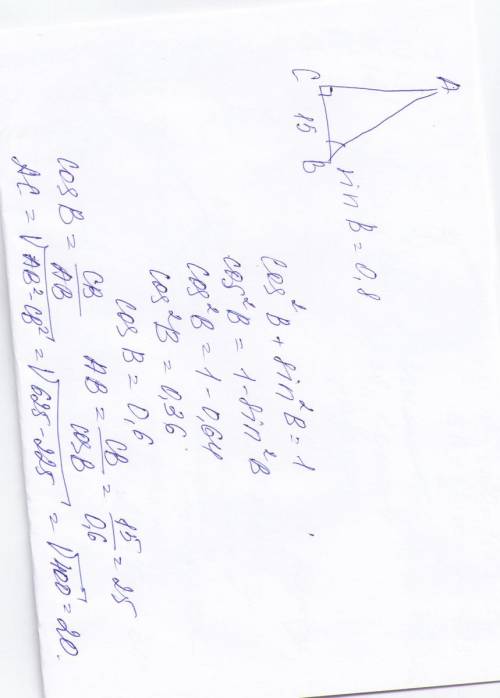 A
C
15
B
sin B = 0,8
cos² B + sin² B = 1
cos² B = 1 - sin² B
cos² B = 1 - 0,64
cos² B = 0,36
cos B = 0,6
cos B = CB/AB AB = CB/cos B = 15/0,6 = 25
AC = √AB² - CB² = √625 - 225 = √400 = 20.